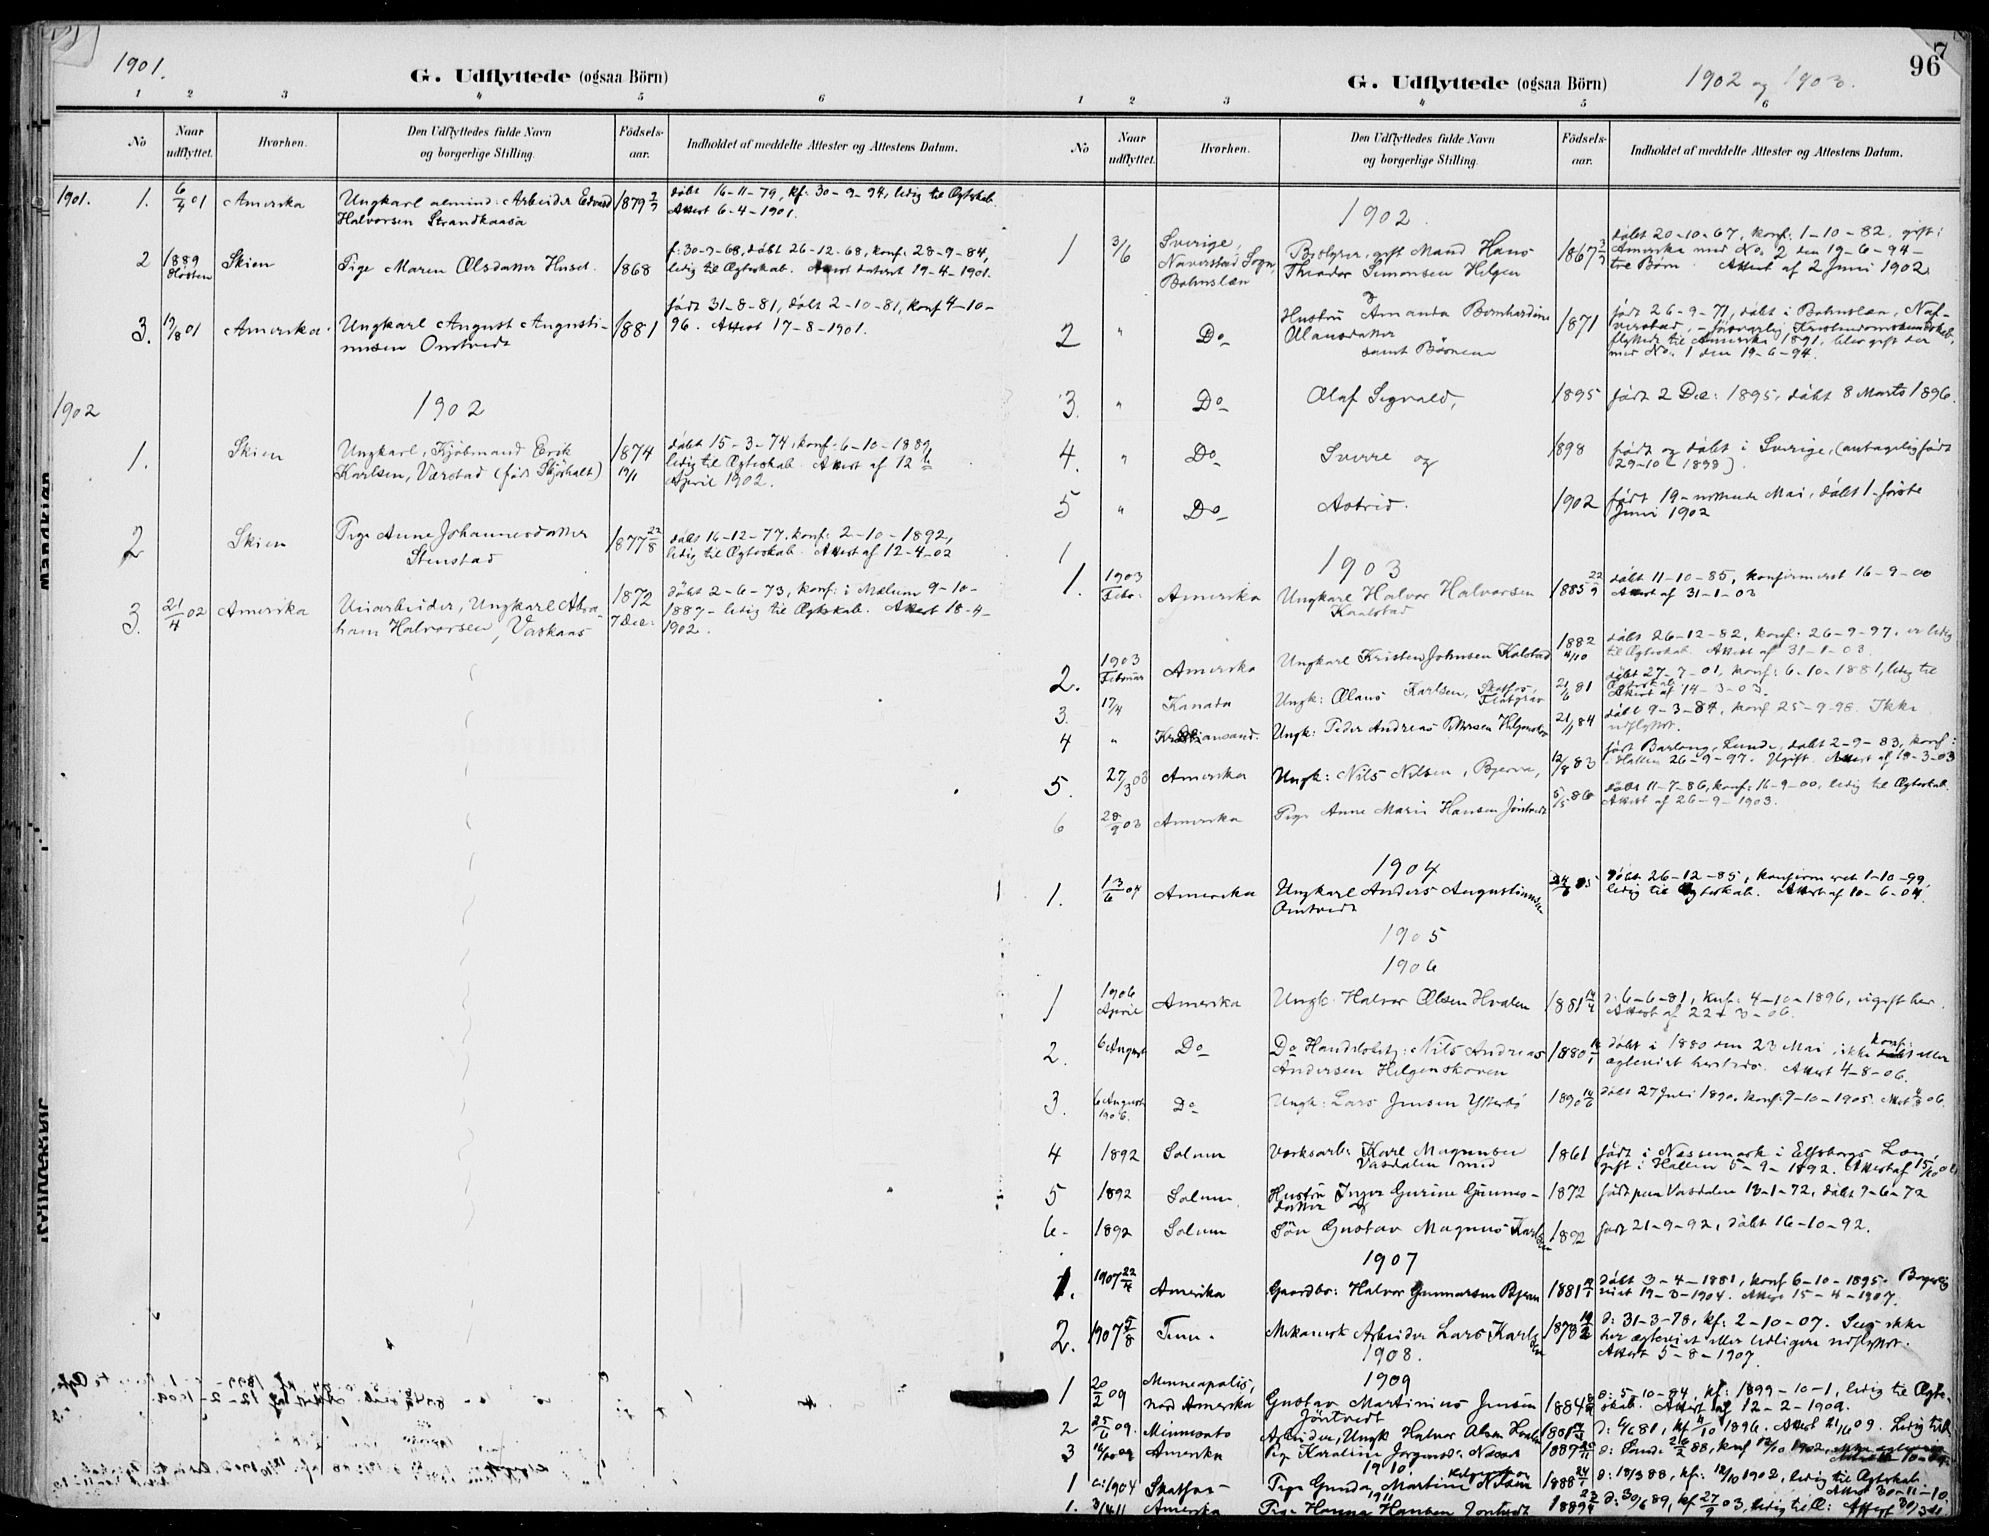 1901.
G. Udflyttede (ogsaa Börn)
1 2 3 4 5 6
No
Naar udflyttet.
Hvorhen.
Den Udflyttedes fulde Navn og borgerlige Stilling.
Födsels-aar.
Indholdet af meddelte Attester og Attestens Datum.
1901. 1. 6/4 01 Amerika Ungkarl almind: Arbeider Edvard 1879 döbt 16-11-79, kf: 30-9-94, ledig til Ægteskab.
Halvorsen Strandkaasa Attest 6-4-1901.
2 1889 Skien Pige Maren Olsdatter Huset. 1868 f: 30-9-68, döbt 26-12-68, konf: 28-9-84,
Hösten ledig til Ægteskab. Attest dateret 19-4-1901.
3. 19/8 01 Amerika Ungkarl August Augusti- 1881 født 31-8-81, döbt 2-10-81, konf 4-10-
nusen Omtvedt 96. Attest 17-8-1901.
1902 1902
1. Skien Ungkarl, Kjöbmand Erik 1874 döbt 15-3-74, konf: 6-10-1889,
Karlsen, Værstad 19/1 ledig til Ægteskab. Attest af 12
April 1902.
2 Skien Pige Anne Johannesdatter 1877 22/8 döbt 16-12-77, konf: 2-10-1892,
Stenstad ledig til Ægteskab. Attest af 12-4-02
3. 21/4 02 Amerika Ungkarl Abra- 1872 döbt 2-6-73, konf: i Mælum 9-10-
ham Halvorsen, Vaskaas 7 Dec: 1887 - ledig til Ægteskab. Attest 18-4-
1902.
G. Udflyttede (ogsaa Börn)
1902 og 1903.
967
1 2 3 4 5 6
No
Naar udflyttet.
Hvorhen.
Den Udflyttedes fulde Navn og borgerlige Stilling.
Födsels-aar.
Indholdet af meddelte Attester og Attestens Datum.
1902.
1 3/6 Sverige, gift Mand Hans 1867 döbt 20-10-67, konf: 1-10-82, gift i
Naverstad Sogn Theodor Simonsen Helgen Amerika med No. 2 den 19-6-94 -
Bohuslæn tre Börn Attest af 2 Juni 1902.
2 " Do Hustru Amanda Bernhardine 1871 født 26-9-71, döbt i Bohuslæn, Naf-
Olausdatter verstad,
samt Börnene flyttede til Amerika 1891, blev gift der
med No. 1 den 19-6-94.
3. " Do Olaf Sigvald, 1895 født 2 Dec: 1895, döbt 8 Marts 1896.
4. " Do Sverre og 1898 født og döbt i Sverige, (antagelig født
29-10-1898).
5 " Do Astrid. 1902 født 19-nittende Mai, döbt 1-förste
Juni 1902
1903
1. 1903 Febr: Amerika Ungkarl Halvor Halvorsen 1885 22/9 döbt 11-10-85, konfirmeret 16-9-00
Kaalstad Attest af 31-1-03
2. 1903 Februar Amerika Ungkarl Kristen Johnsen Kalstad 1882 4/10 döbt 26-12-82, konf: 26-9-97. er ledig
til Ægteskab. Attest af 31-1-03.
3. 17/4 Kanada Ungk: Olaus Karlsen, Skotfos, 21/6 81 döbt 27-7-01, konf: 6-10-1881, ledig til
Ægteskab. Attest af 14-3-03.
4 " Kristiansand. Ungk: Peder Andreas 21/1 84 döbt 9-3-84, konf 25-9-98. Ikke
udflyttet.
5. 27/3 03 Amerika Ungk: Nils Nilsen, Bjerva, 12/8 83 født Barlaug, Lunde, döbt 2-9-83, konf:
i Hollen 26-9-97. Ugift. Attest af 18-3-03
6 28/9 03 Amerika Pige Anne Marie Hansen Jöntvedt 5/5 86 döbt 11-7-86, konf: 16-9-00, ledig til Ægteskab.
Attest af 26-9-1903.
1904
1. 13/6 04 Amerika Ungkarl Anders Augustinusen 85 döbt 26-12-85, konfirmeret 1-10-99,
Omtvedt ledig til Ægteskab. Attest af 10-6-04.
1905
1906
1 1906 April Amerika Ungk: Halvor Olsen Hvalen 1881 d: 6-6-81, Knf: 4-10-1896, ugift her.
Attest af 22-3-06.
2. 6 August Do Do Handelsbetj: Nils Andreas 1880 döbt i 1880 den 23 Mai, ikke konf: eller
Andersen Helgenskoven ægteviet herstedes. Attest 4-8-06.
3. 6 August 1906. Do Ungk: Lars Jensen Ytterbö 1890 14/6 döbt 27 Juli 1890, konf: 9-10-1905. Attest 4/8 06.
4 1892 Solum Værksarb: Karl Magnusen 1861 født i Nössemark i Elfsborgs Len,
Vasdalen med gift i Hollen 5-9-1892.
5 1892 Solum Hustru Inger Gurine Gunnes- 1872 født paa Vasdalen 13-1-72, döbt 9-6-72
datter og
6- 1892 Solum Sön Gustav Magnus Karlsen 1892 født 21-9-92, döbt 16-10-92.
1907
1. 1907 22/4 Amerika Gaardbr: Halvor Gunnarsen Bjerva 1881 döbt 3-4-1881, konf 6-10-1895. Borgerlig
viet 19-3-1904. Attest 15-4-1907.
2. 1907 5/8 Tinn. Mekanisk Arbeider Lars Karlsen 1878 d: 31-3-78, kf: 2-10-07. Sees ikke
her ægteviet eller tidligere udflyttet.
Attest 5-8-1907.
1908.
1909
1 20/2 09 Minneapolis, Nord Amerika Gustav Martinius Jensen 1884 d: 5-10-84, kf: 1899-10-1, ledig til Ægte-
Jöntvedt skab. Attest af 12-2-1909.
2 25/6 09. Minnesota Arbeider, Ungk Halvor Olsen 1881
3 Amerika Pige Karoline 1889
1910.
1 1904 Skotfos Pige Gunda Martine Nilsen 1888 d: 18/3 88, kf: 12/10 1902, ledig til Ægteskab
Attest 30-11-10.
1911
1. Amerika Pige Hanna Hansen Jöntvedt 1889 d: 30/6 89, kf 27/9 03, ledig til Æ: Attest